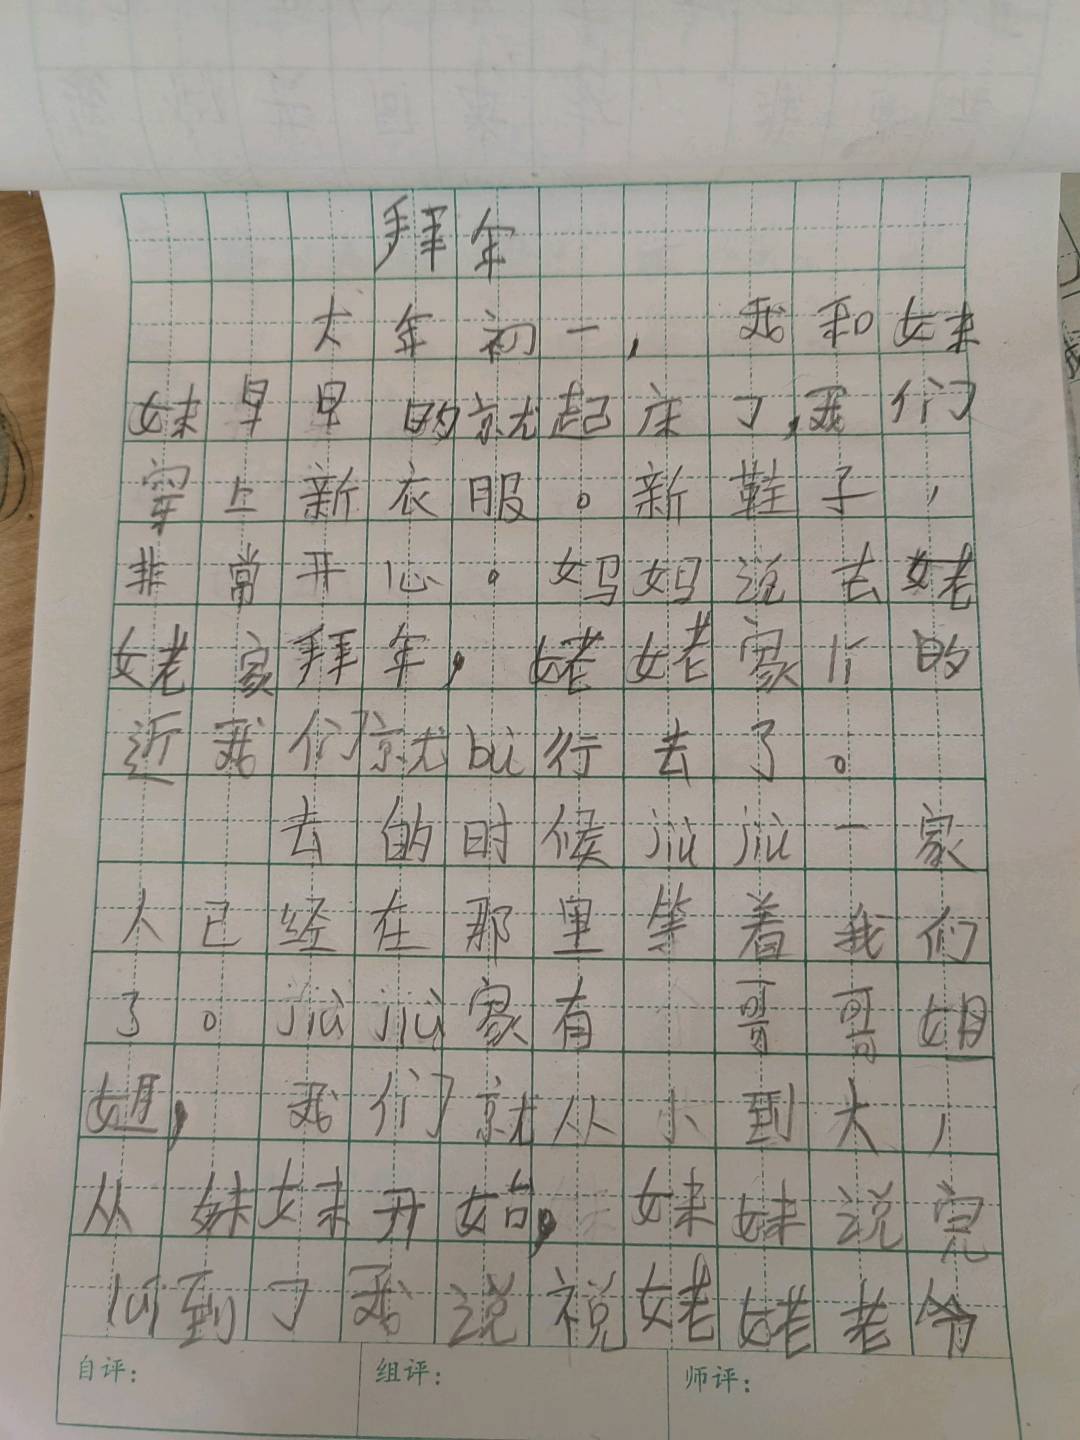 拜年
大年初一，我和妹
妹早早的就起床了，我们
穿上新衣服。新鞋子，
非常开心。妈妈说去姥
姥家拜年，姥姥家lí的
近我们就bù行去了。
去的时候jiù jiù一家
人已经在那里等着我们
了。jiù jiù家有哥哥姐
姐，我们就从小到大，
从妹妹开始，妹妹说完
lún到了我说祝姥姥老爷
自评：  组评：  师评：